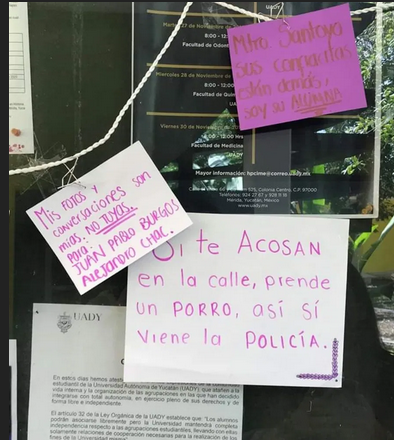 UADY
Martes 27 de Noviembre de
8:00 - 12:
Facultad de Odon
Miercoles 28 de Noviembre de
8:00 - 12:00
Facultad de Quím
UA
Viernes 30 de Noviembre de 20
8:00 - 12:00 Hr
Facultad de Medicina
Mayor información: hpcime@correo.uady.mx
Colonia Centro, C.P. 97000
Mérida, Yucatán, México
www.uady.mx
Mtro. Santoyo
sus compañitas
están demás,
soy su ALUMNA
Mis fotos y
conversaciones son
mías, NO TUYOS.
para:
JUAN PABLO BURGOS
Alejandro CHAC.
Si te ACOSAN
en la calle, prende
un PORRO, así sí
viene la POLICÍA.
UADY
En estos días hemos
estudiantil de la Universidad Autónoma de Yucatán (UADY), que atañen a la
vida interna y la organización de las agrupaciones en las que han decidido
integrarse con total autonomía, en ejercicio pleno de sus derechos y de
forma libre e independiente.
El artículo 32 de la Ley Orgánica de la UADY establece que "Los alumnos
podrán asociarse libremente pero la Universidad mantendrá completa
independencia respecto a las agrupaciones estudiantiles, llevando con ellas
relaciones de cooperación necesarias para la realización de los
fines de la Universidad